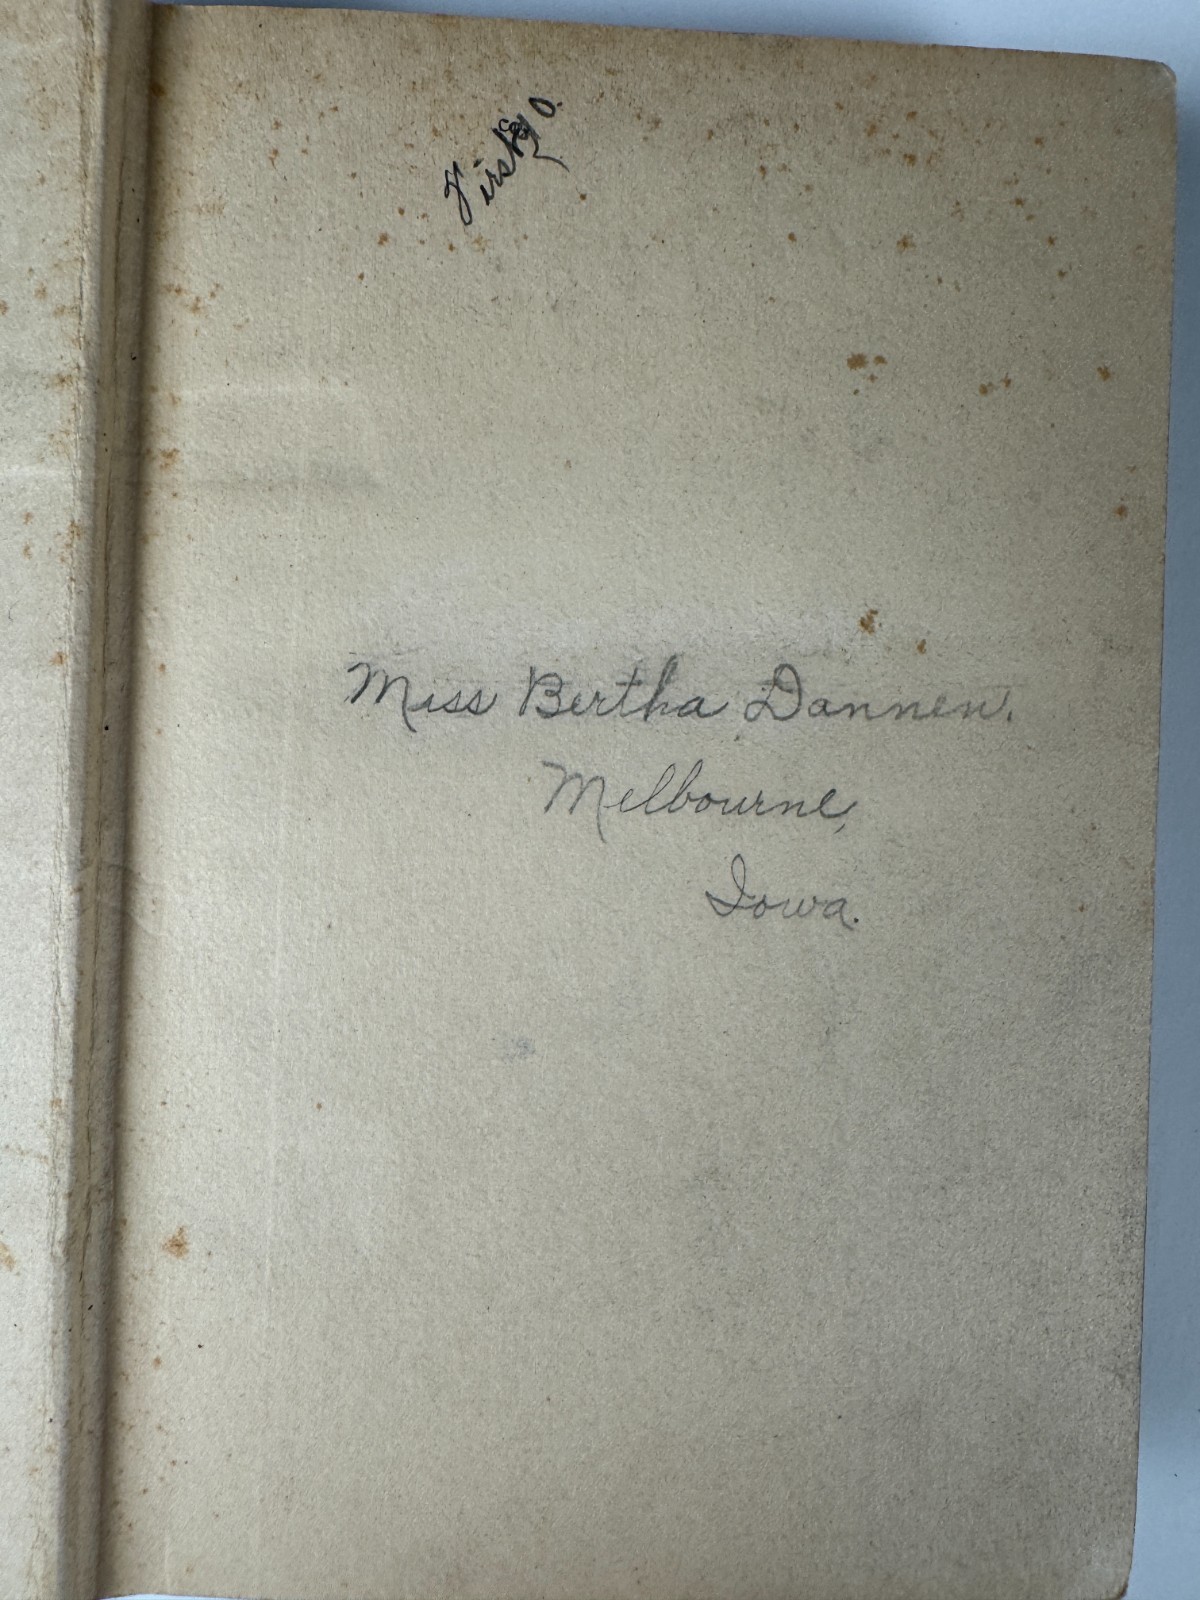 First
Miss Bertha Dannen.
Melbourne,
Iowa.